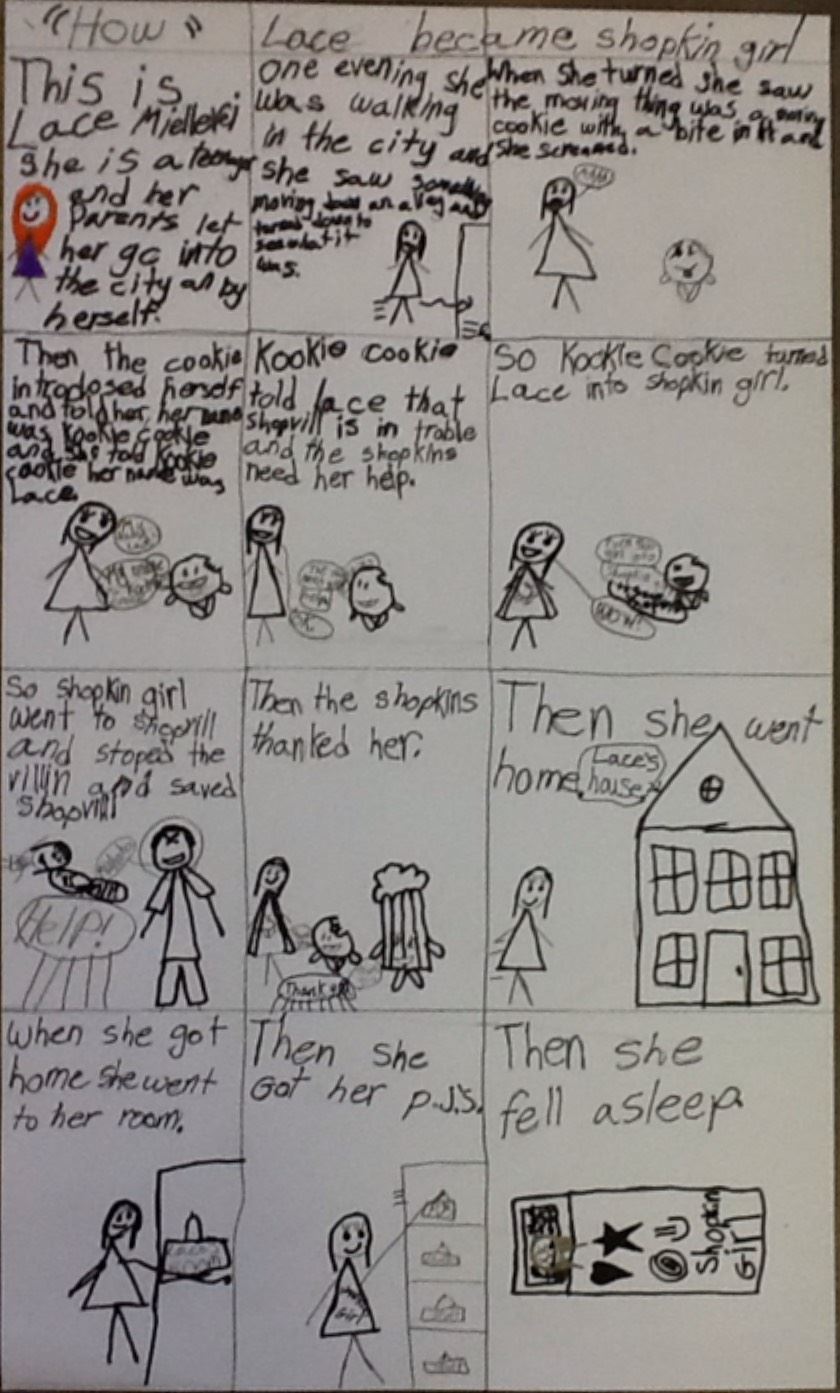 "How" Lace became shopkin girl
This is
Lace
she is a teenager
and her
Parents let
her go into
the city all by
herself.
one evening she
was walking
in the city and
she saw something
moving down an alley and
turned down to
see what it
was.
When She turned she saw
the moving thing was a moving
cookie with a bite in it and
she screamed.
Then the cookie
introdosed herself
and told her her name
was Kookie cookie
and she told Kookie
cookie her name was
Lace.
Kookie cookie
told lace that
shopvill is in troble
and the shopkins
need her help.
OK
So Kookie Cookie turned
Lace into shopkin girl.
WOW!
So shopkin girl
went to shopvill
and stoped the
villin and saved
Shopvill
HELP!
Then the shopkins
thanked her.
Thank you
Then she went
home.
Lace's
house
When she got
home she went
to her room.
Lace's
room
Then she
Got her p.J.s.
Girl
Then she
fell asleep.
Shopkin
Girl